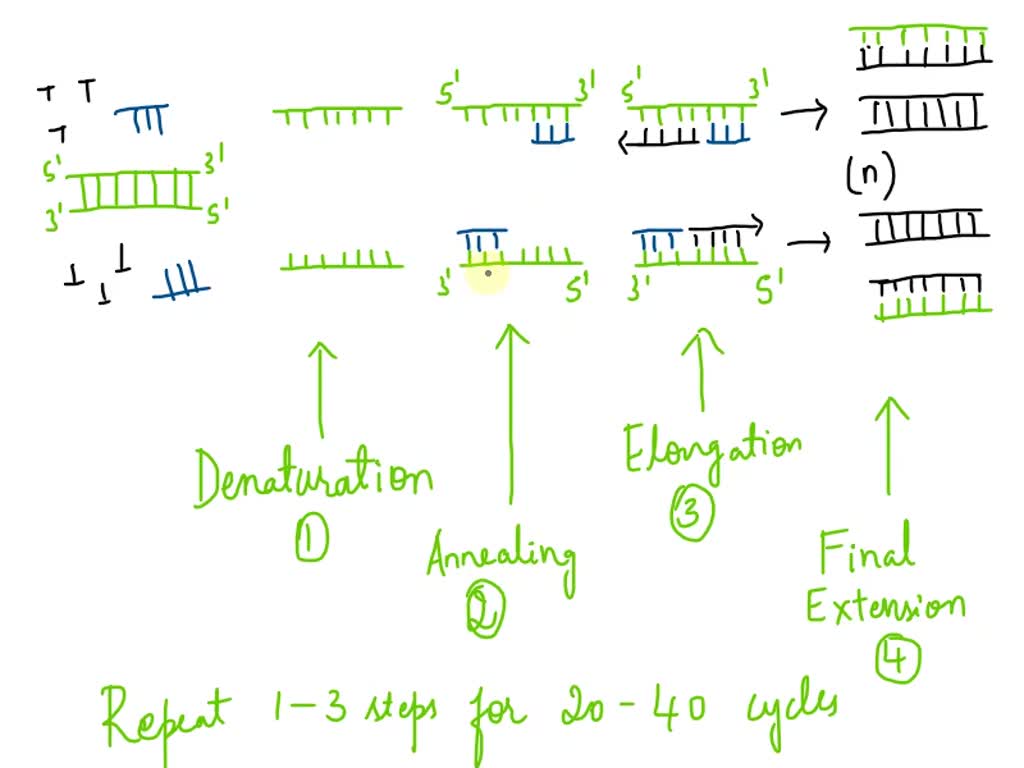 5' 3'
3' 5'
5' 3'
3' 5'
5' 3'
3' 5'
(n)
Denaturation
1
Annealing
2
Elongation
3
Final
Extension
4
Repeat 1-3 steps for 20-40 cycles